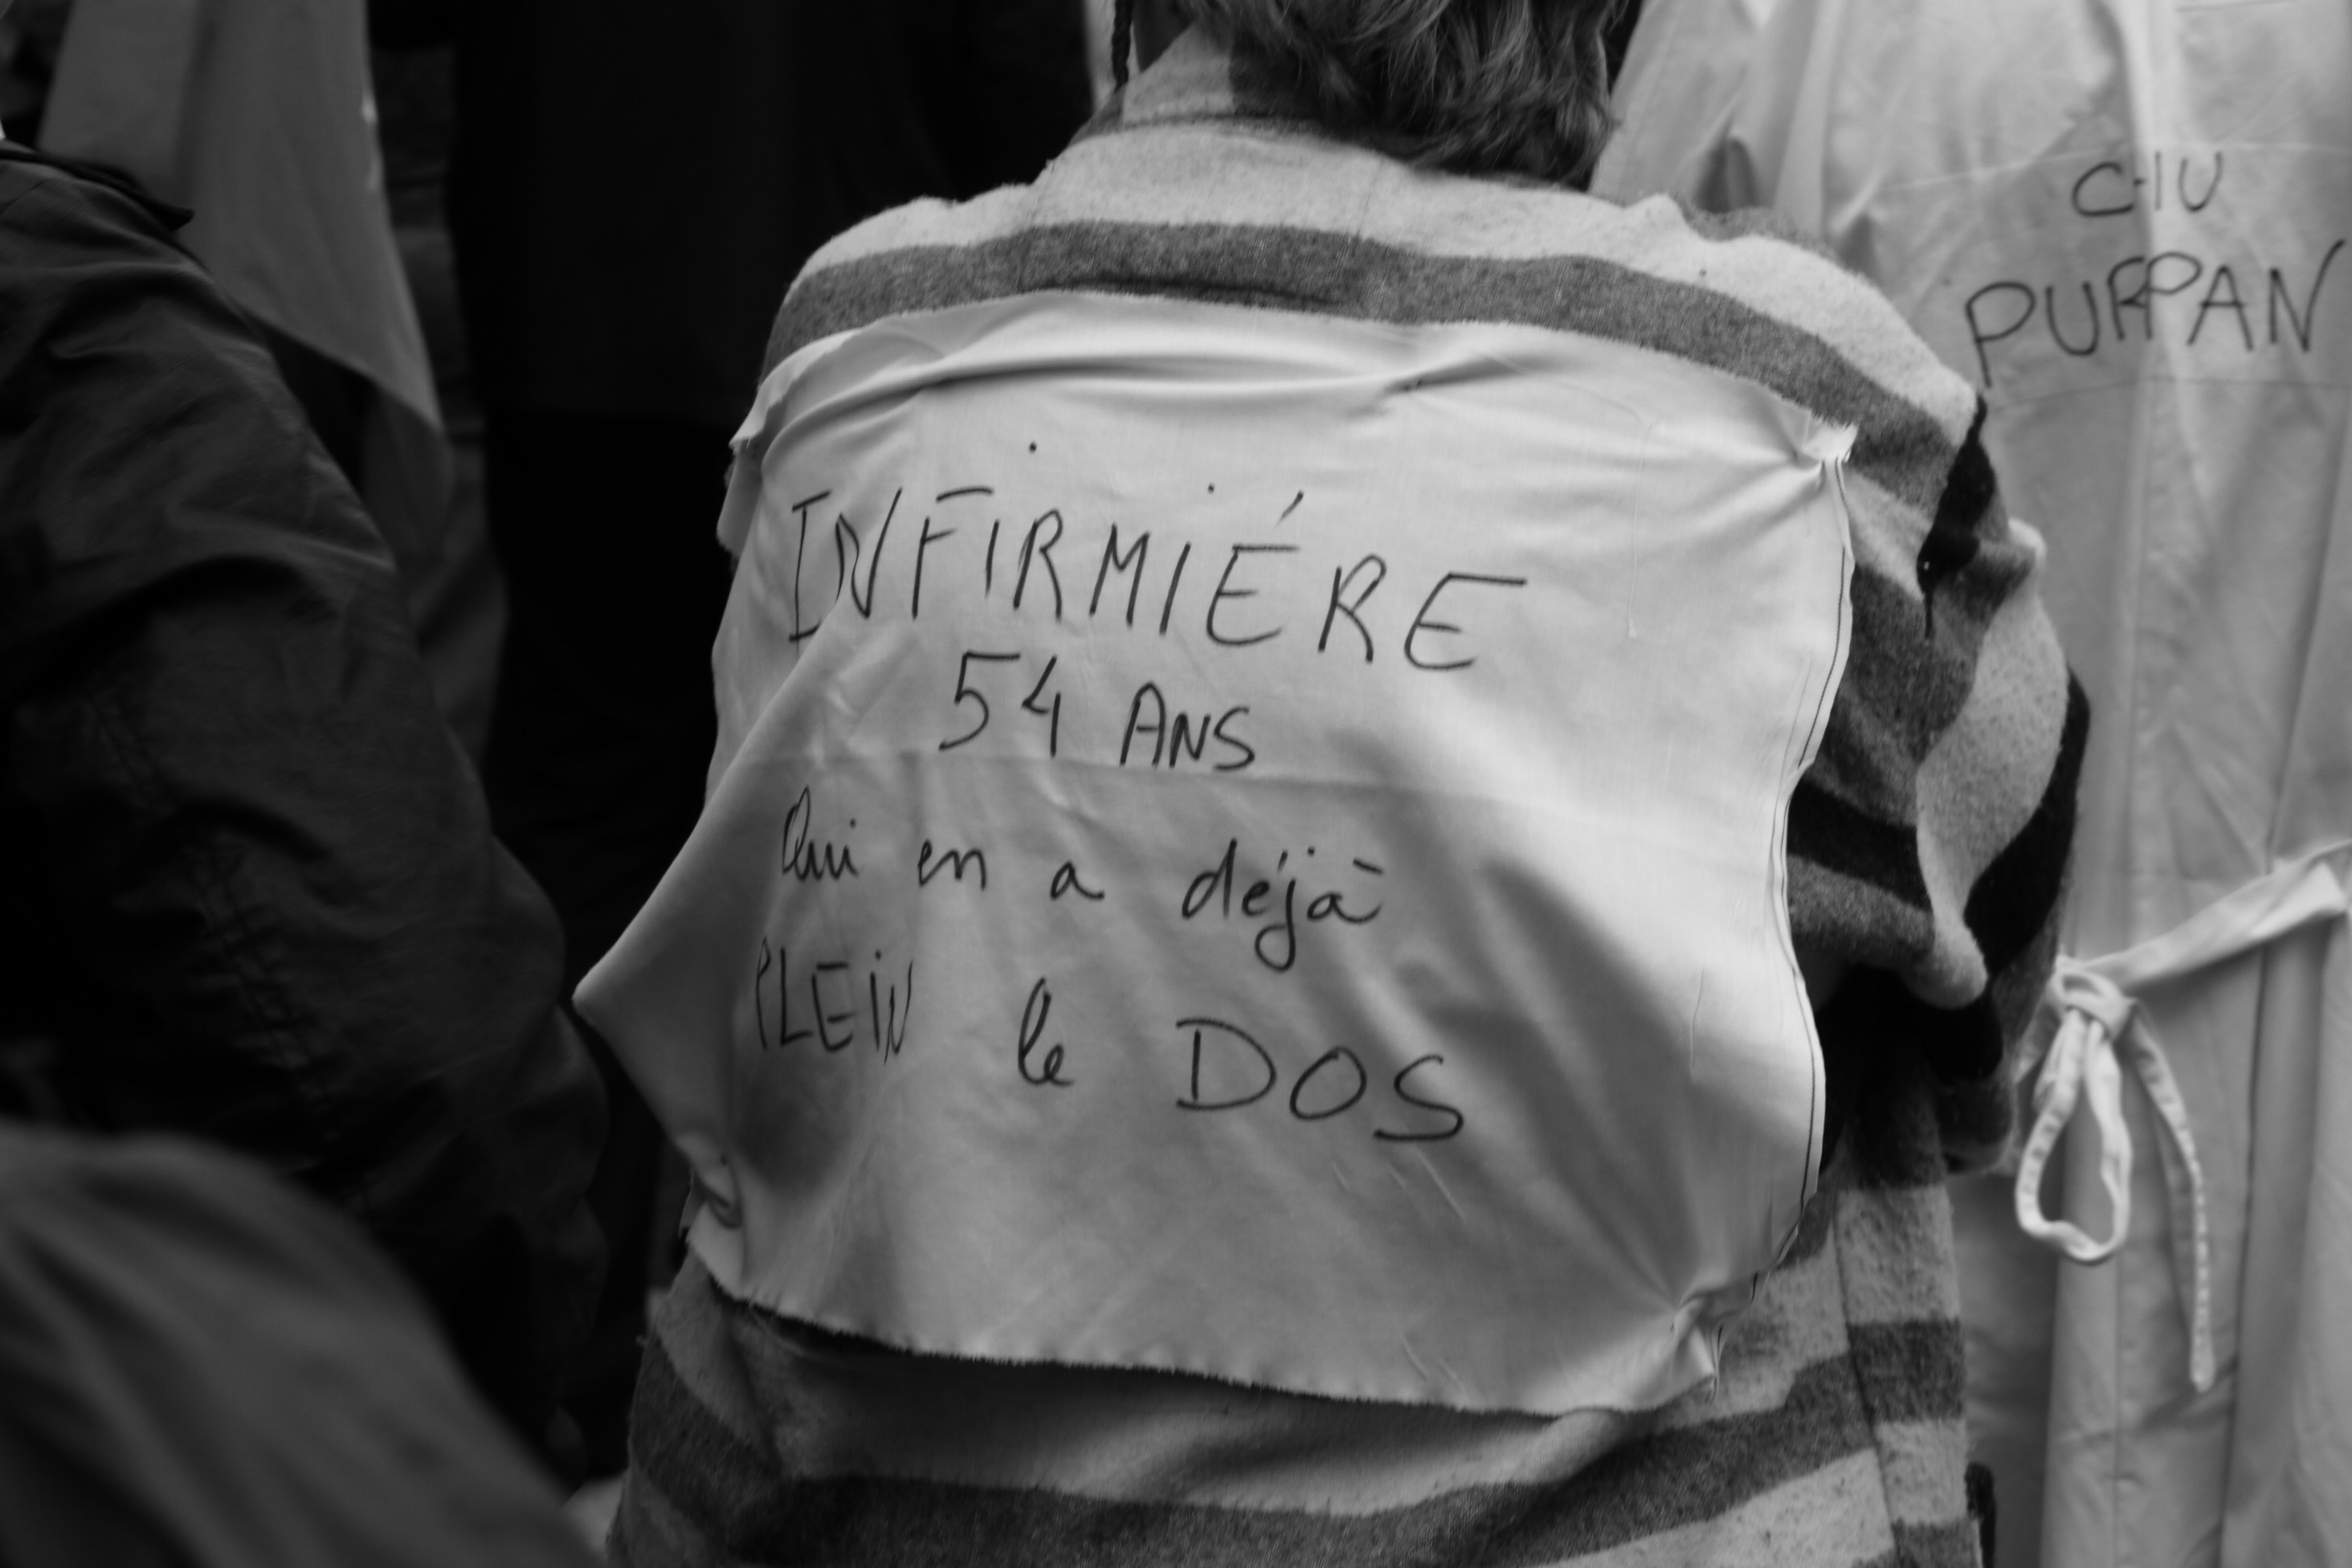 INFIRMIÉRE
54 ANS
Qui en a déjà
PLEIN le DOS
CHU
PURPAN